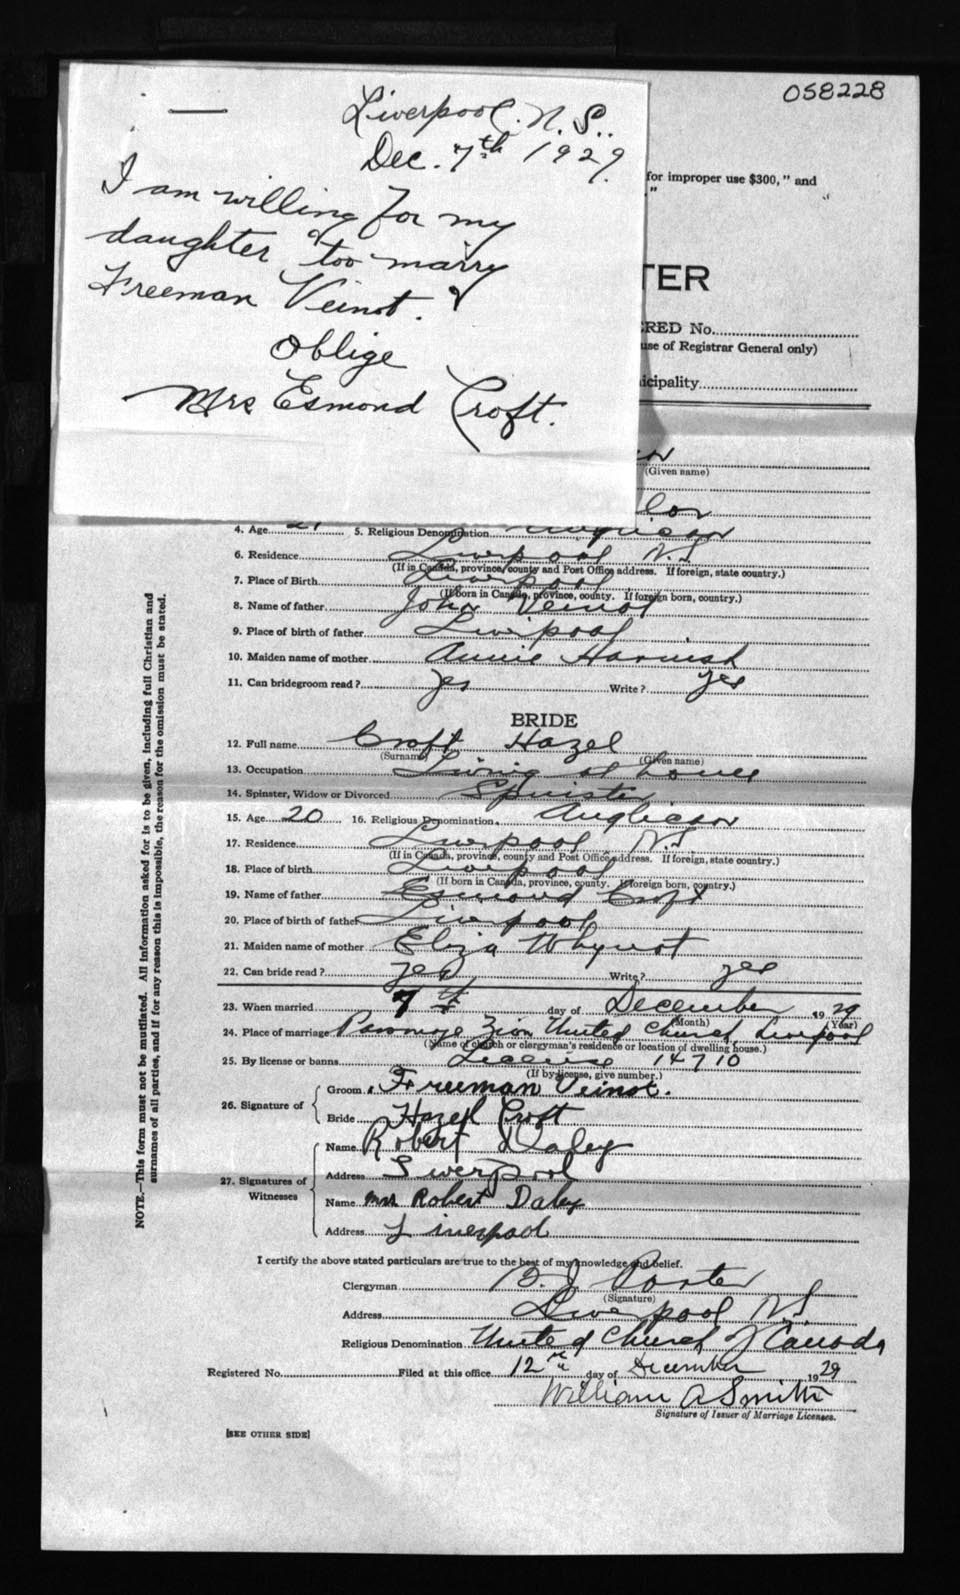 058228
Liverpool. N. S..
Dec. 7th 1929.
I am willing for my
daughter too marry
Freeman Veinot.
Oblige
Mrs Esmond Croft.
for improper use $300," and
."
TER
RED No.
use of Registrar General only)
icipality
(Given name)
lor
4. Age 21 5. Religious Denomination Anglican
6. Residence Liverpool N.S
(If in Canada, province, county and Post Office address. If foreign, state country.)
7. Place of Birth Liverpool
(If born in Canada, province, county. If foreign born, country.)
8. Name of father John Veinot
9. Place of birth of father Liverpool
10. Maiden name of mother Annie Harnish
11. Can bridegroom read? Yes Write? Yes
BRIDE
12. Full name Croft Hazel
(Surname) (Given name)
13. Occupation Living at home
14. Spinster, Widow or Divorced Spinster
15. Age 20 16. Religious Denomination Anglican
17. Residence Liverpool N.S
(If in Canada, province, county and Post Office address. If foreign, state country.)
18. Place of birth Liverpool
(If born in Canada, province, county. If foreign born, country.)
19. Name of father Esmond Croft
20. Place of birth of father Liverpool
21. Maiden name of mother Eliza Whynot
22. Can bride read? Yes Write? Yes
23. When married 7th day of December 1929
(Month) (Year)
24. Place of marriage Parsonage Zion United Church, Liverpool
(Name of church or clergyman's residence or location of dwelling house.)
25. By license or banns License 14710
(If by license, give number.)
26. Signature of Groom Freeman Veinot.
Bride Hazel Croft
27. Signatures of Witnesses Name Robert Daley
Address Liverpool
Name Mrs Robert Daley
Address Liverpool
I certify the above stated particulars are true to the best of my knowledge and belief.
Clergyman B. J. Porter
(Signature)
Address Liverpool N.S
Religious Denomination United Church of Canada
Registered No. Filed at this office 12th day of December 1929
William A Smith
Signature of Issuer of Marriage Licenses.
[SEE OTHER SIDE]
NOTE.—This form must not be mutilated. All information asked for is to be given, including full Christian and
surnames of all parties, and if for any reason this is impossible, the reason for the omission must be stated.